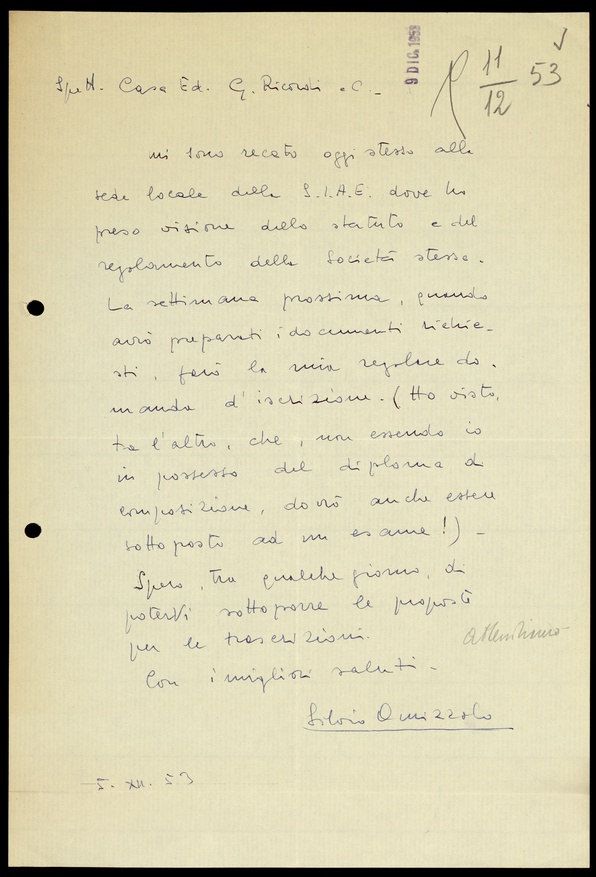 9 DIC. 1953
R 11/12 53
Spett. Casa Ed. G. Ricordi e C. -
mi sono recato oggi stesso alla
sede locale della S.I.A.E. dove ho
preso visione dello statuto e del
regolamento della Società stessa.
La settimana prossima, quando
avrò preparati i documenti richie-
sti, farò la mia regolare do-
manda d'iscrizione. (Ho visto,
tra l'altro, che, non essendo io
in possesso del diploma di
composizione, dovrò anche essere
sottoposto ad un esame!) -
Spero, tra qualche giorno, di
poterVi sottoporre le proposte
per le trascrizioni.
attendiamo
Con i migliori saluti -
Silvio Omizzolo
5. XII. 53